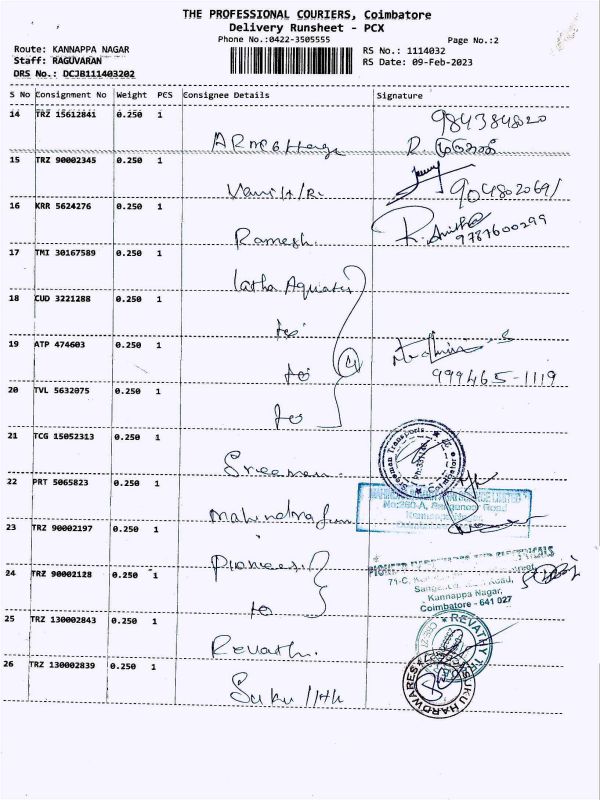 THE PROFESSIONAL COURIERS, Coimbatore
Delivery Runsheet - PCX
Phone No.:0422-3505555
Page No.:2
Route: KANNAPPA NAGAR
RS No.: 1114032
Staff: RAGUVARAN
RS Date: 09-Feb-2023
DRS No.: DCJB111403202
S No Consignment No Weight PCS Consignee Details Signature
14 TRZ 15612841 0.250 1
984384820
R.
15 TRZ 90002345 0.250 1
9048020691
16 KRR 5624276 0.250 1
Ramesh.
R. Anitha
9787600299
17 TMI 30167589 0.250 1
Latha Aquatis
18 CUD 3221288 0.250 1
to
19 ATP 474603 0.250 1
to
4
999465-1119
20 TVL 5632075 0.250 1
to
21 TCG 15052313 0.250 1
Sreeman
Sreeman Transports
Coimbatore
22 PRT 5065823 0.250 1
Mahindra
No:260-A, Sanganoor Road
Kannappa Nagar
23 TRZ 90002197 0.250 1
Pioneer
PIONEER HARDWARES AND ELECTRICALS
71-C,
Road,
Kannappa Nagar,
Coimbatore - 641 027
24 TRZ 90002128 0.250 1
to
25 TRZ 130002843 0.250 1
Revathi.
REVATHY
26 TRZ 130002839 0.250 1
Suku
SUKU HARDWARES